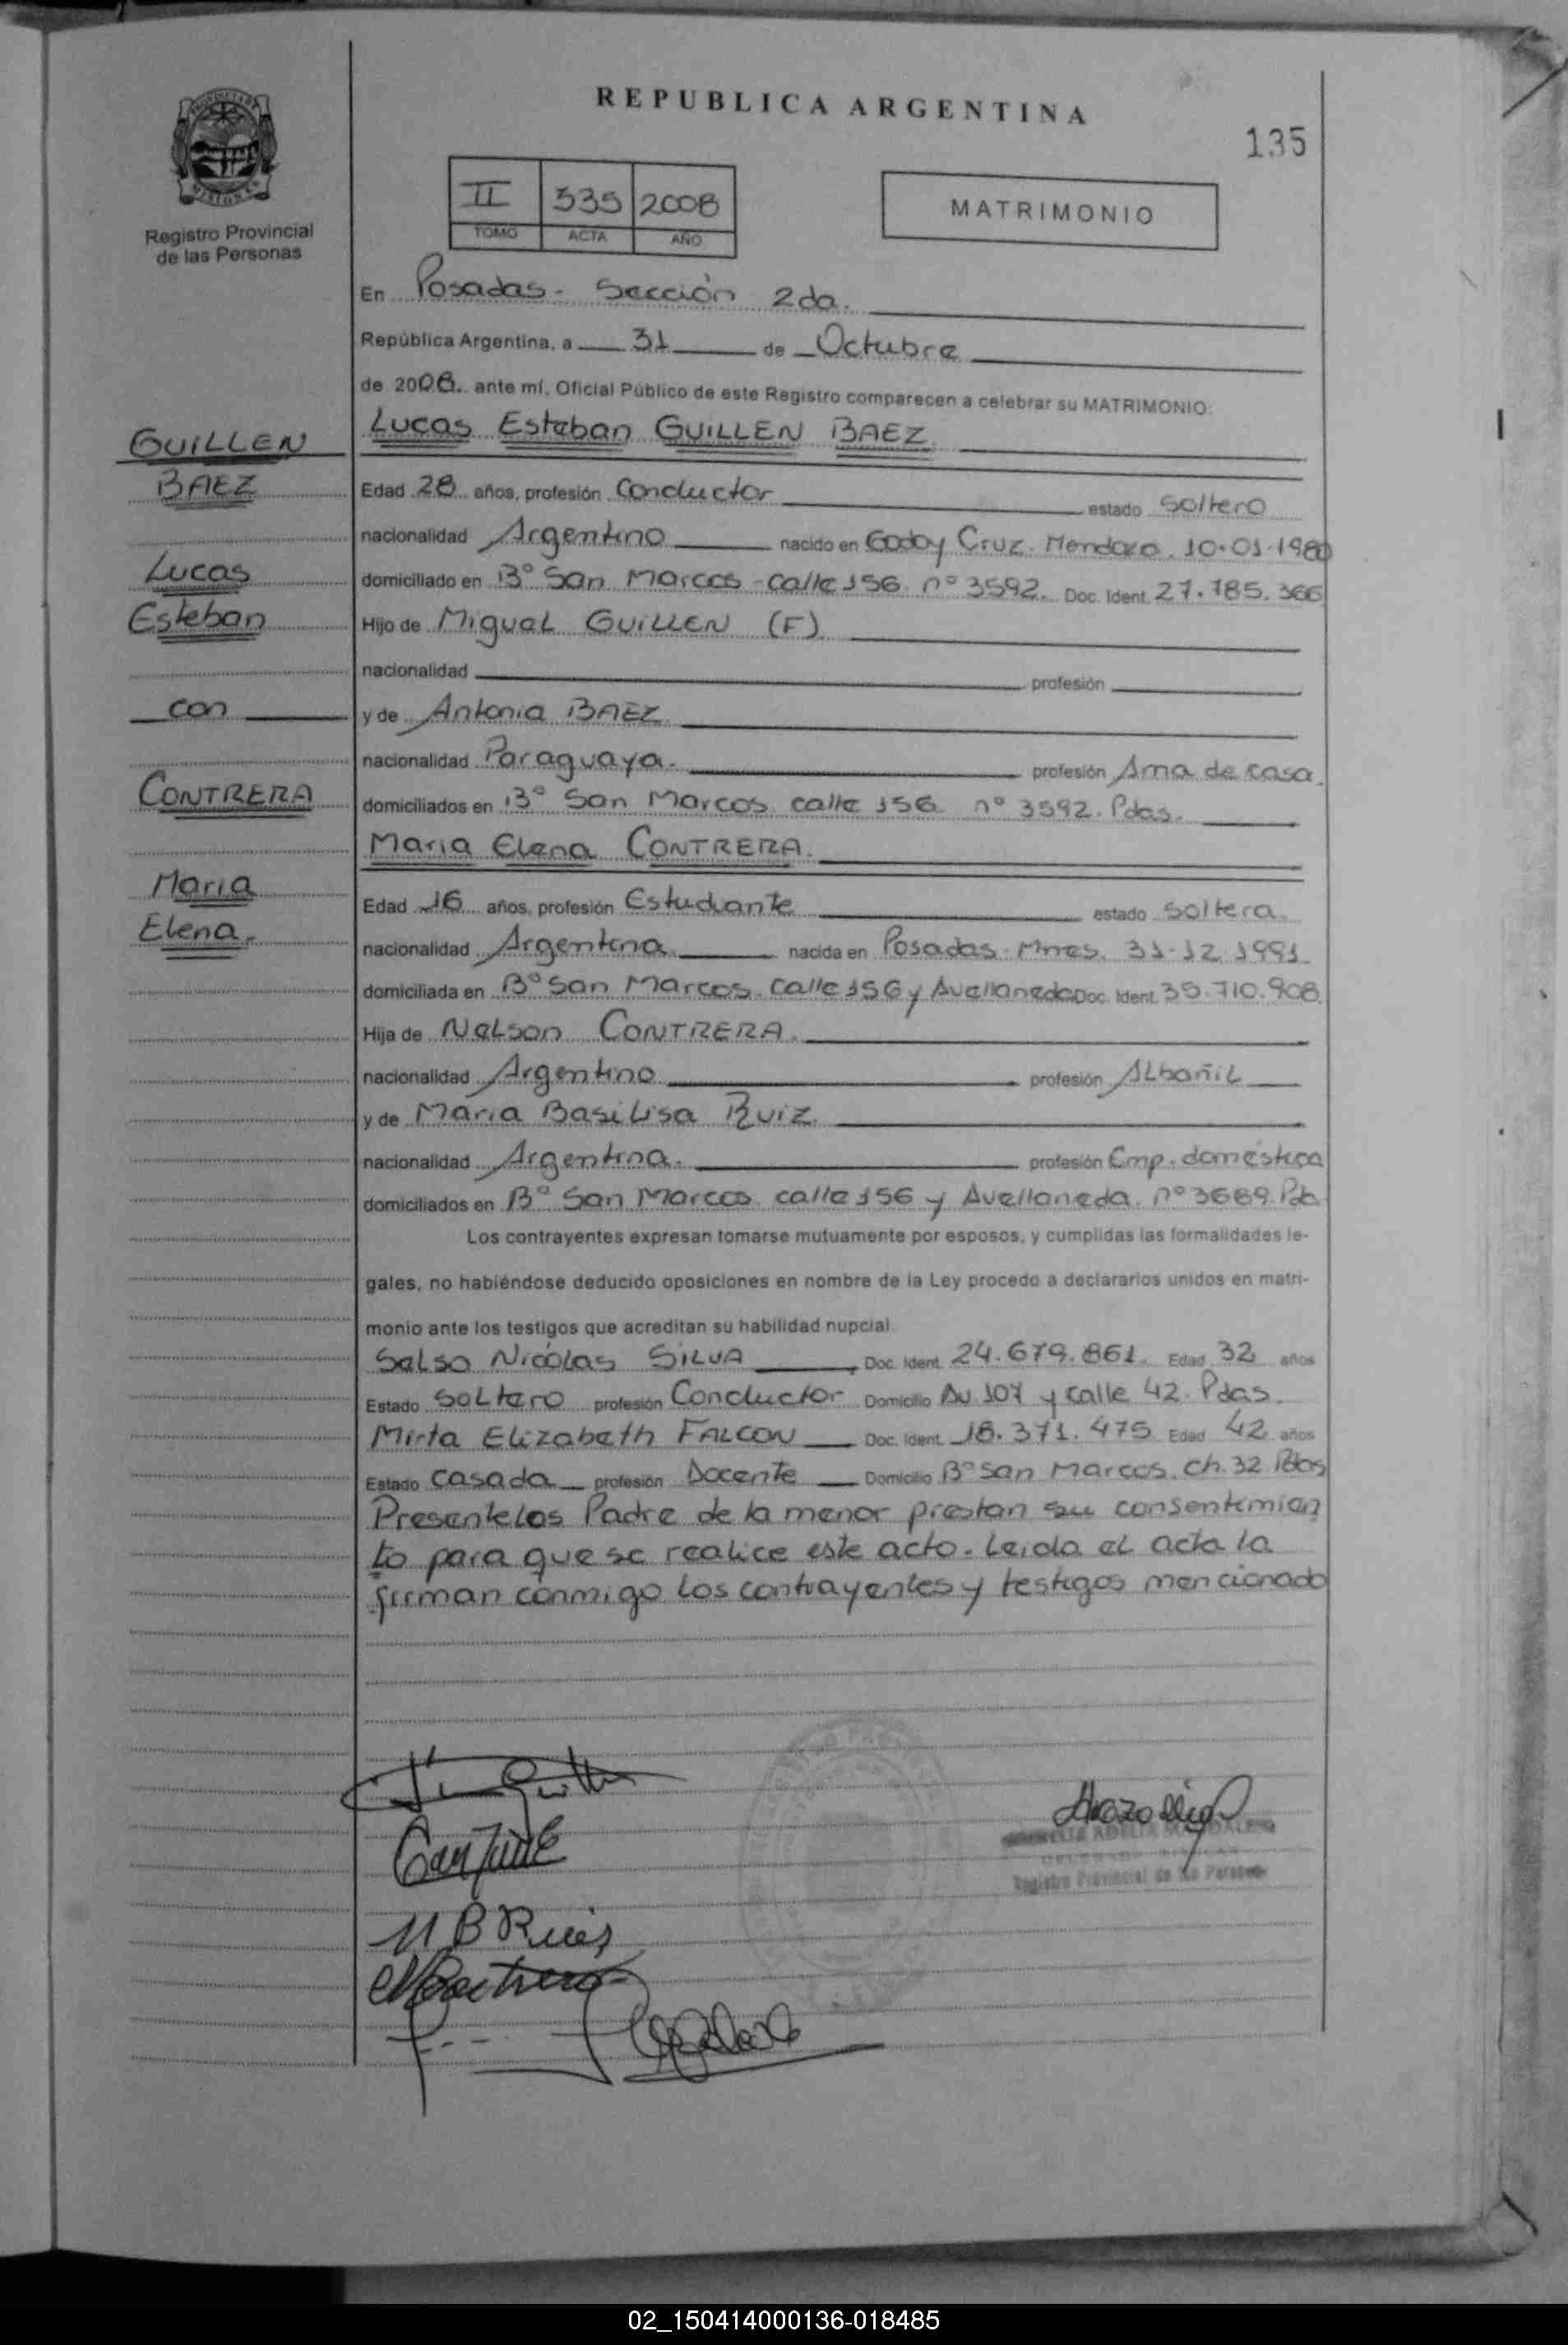 REPUBLICA ARGENTINA
135
Registro Provincial
de las Personas
II 335 2008
TOMO ACTA AÑO
MATRIMONIO
En Posadas - Sección 2da.
República Argentina, a 31 de Octubre
de 2008. ante mí, Oficial Público de este Registro comparecen a celebrar su MATRIMONIO:
Lucas Esteban GUILLEN BAEZ
GUILLEN
BAEZ
Lucas
Esteban
con
CONTRERA
Maria
Elena.
Edad 28 años, profesión Conductor estado soltero
nacionalidad Argentino nacido en Godoy Cruz. Mendoza. 10-01-1980
domiciliado en Bº San Marcos - calle 156 nº 3592. Doc. Ident. 27.785.366
Hijo de Miguel GUILLEN (F)
nacionalidad profesión
y de Antonia BAEZ
nacionalidad Paraguaya - profesión Ama de casa.
domiciliados en Bº San Marcos calle 156 nº 3592. Pdas.
Maria Elena CONTRERA.
Edad 16 años, profesión Estudiante estado soltera.
nacionalidad Argentina nacida en Posadas. Mnes. 31-12-1991
domiciliada en Bº San Marcos. Calle 156 y Avellaneda Doc. Ident. 35.710.908.
Hija de Nelson CONTRERA.
nacionalidad Argentino profesión Albañil
y de Maria Basilisa Ruiz.
nacionalidad Argentina. profesión Emp. doméstica
domiciliados en Bº San Marcos calle 156 y Avellaneda. nº 3689. Pds
Los contrayentes expresan tomarse mutuamente por esposos, y cumplidas las formalidades le-
gales, no habiéndose deducido oposiciones en nombre de la Ley procedo a declararlos unidos en matri-
monio ante los testigos que acreditan su habilidad nupcial.
Selso Nicolas SILVA, Doc. Ident. 24.679.861. Edad 32 años
Estado soltero profesión Conductor Domicilio Av. 107 y calle 42. Pdas.
Mirta Elizabeth FALCON Doc. Ident. 18.371.475 Edad 42 años
Estado casada profesión Docente Domicilio Bº San Marcos. ch. 32 Pdas
Presentelos Padre de la menor prestan su consentimien
to para que se realice este acto. Leida el acta la
firman conmigo los contrayentes y testigos mencionado
M B Ruis
Registro Provincial de las Personas
02_150414000136-018485